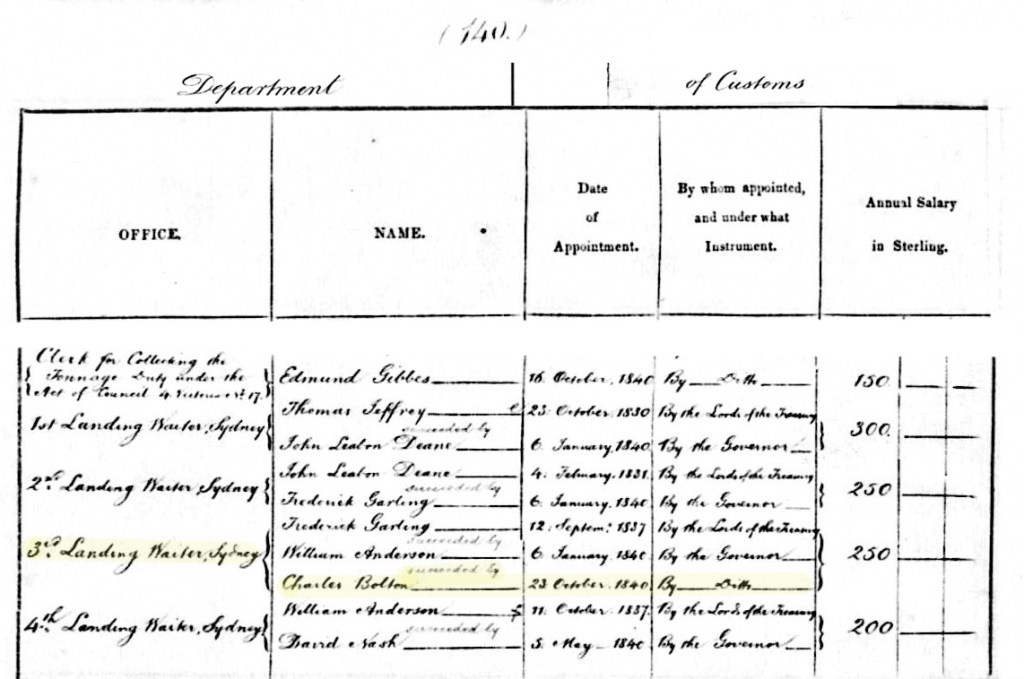 (140.)
Department of Customs
OFFICE. NAME. Date of Appointment. By whom appointed, and under what Instrument. Annual Salary in Sterling.
Clerk for Collecting the
Tonnage Duty under the
Act of Council 4 Victoria No. 17.
Edmund Gibbes 16 October, 1840 By Ditto 150
Thomas Jeffrey 23 October, 1830 By the Lords of the Treasury
succeeded by
1st Landing Waiter, Sydney 300
John Leaton Deane 6 January, 1840 By the Governor
John Leaton Deane 4 February, 1831 By the Lords of the Treasury
succeeded by
2nd Landing Waiter, Sydney 250
Frederick Garling 6 January, 1840 By the Governor
Frederick Garling 12 Septemr. 1837 By the Lords of the Treasury
succeeded by
3rd Landing Waiter, Sydney William Anderson 6 January, 1840 By the Governor 250
succeeded by
Charles Bolton 23 October, 1840 By Ditto
William Anderson 11 October, 1837 By the Lords of the Treasury
succeeded by
4th Landing Waiter, Sydney 200
David Nash 5 May 1840 By the Governor